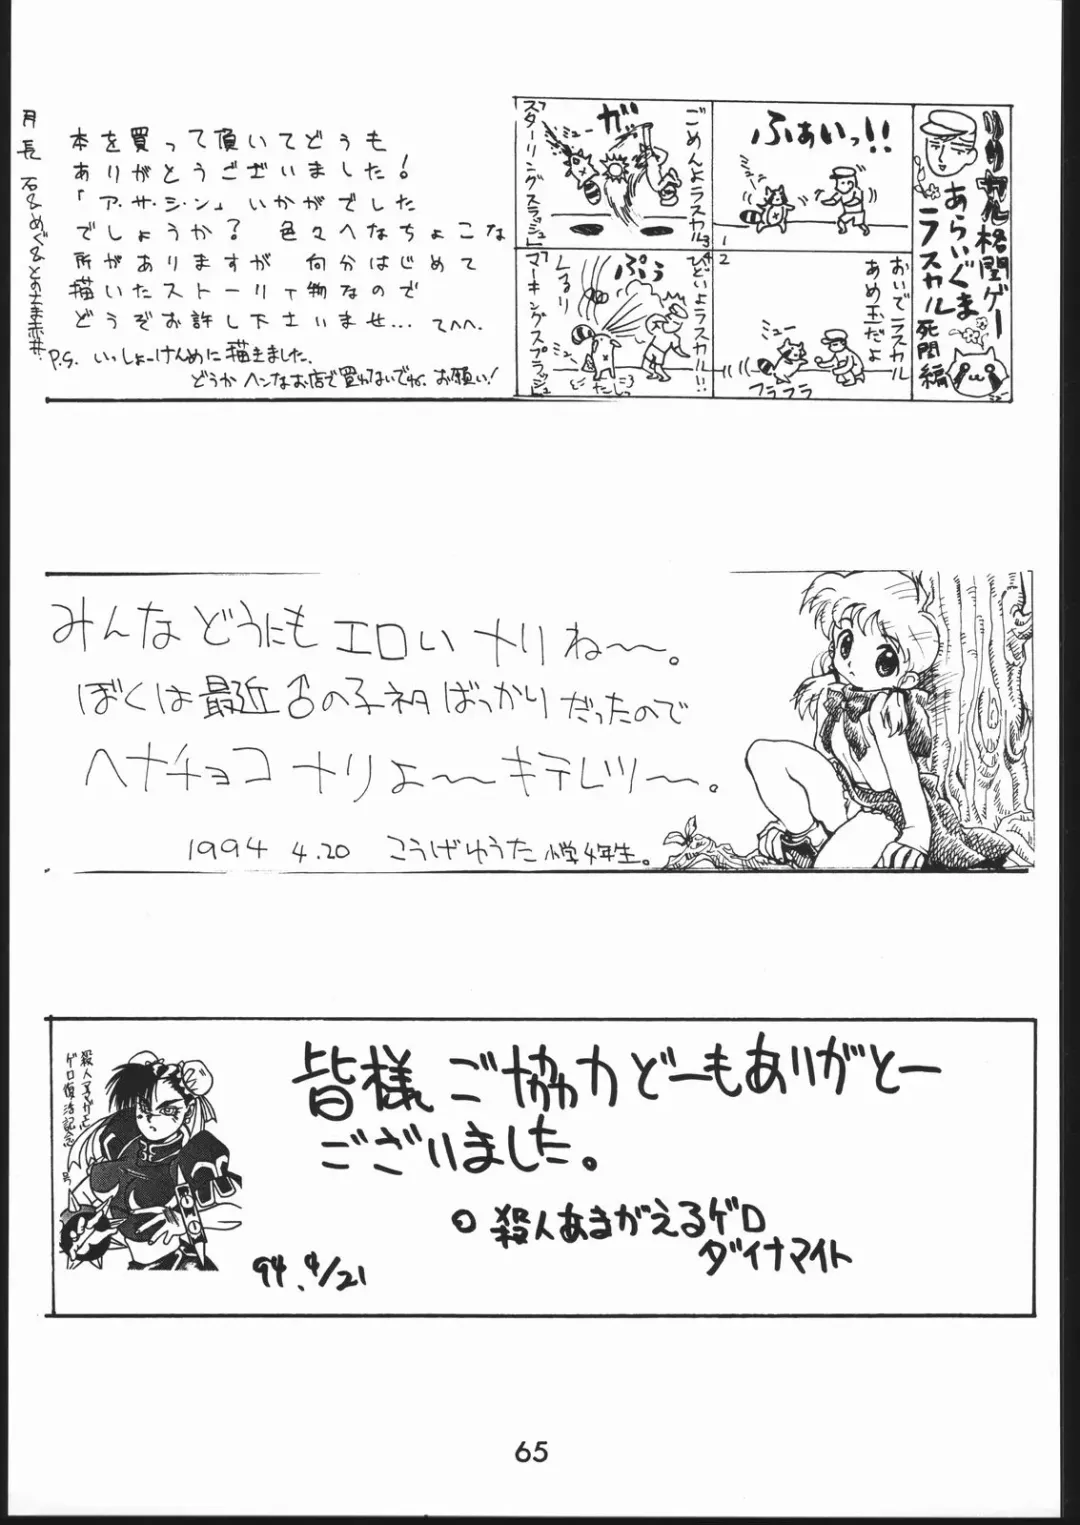 本を買って頂いてどうも
ありがとうございました!
「ア・サ・シ・ン」いかがでした
でしょうか? 色々へなちょこな
所がありますが 何分はじめて
描いたストーリィ物なので
どうぞお許し下さいませ… てへへ.
P.S. いっしょーけんめに描きました.
どうかヘンなお店で買わないでね、お願い!
リリカル格闘ゲー
あらいぐま
ラスカル
死闘編
ふぁいっ!!
ミュー
1
おいでラスカル
あめ玉だよ
2
ミュー
フラフラ
ごめんよラスカル
3
ガ
ミュー
「スターリングスラッシュ」
ひどいよラスカル!!
4
ぷぅ
「マーキングスプラッシュ」
みんな どうにも エロい ナリ ね〜〜。
ぼくは最近♂の子ネタばっかりだったので
ヘナチョコ ナリよ〜〜キテレツ〜〜。
1994 4.20 こうげゆうた 小学4年生。
殺人アマガエル
ゲロ復活記念
号
皆様 ご協力どーもありがとー
ございました。
殺人あまがえるゲロ
ダイナマイト
94. 4/21
65